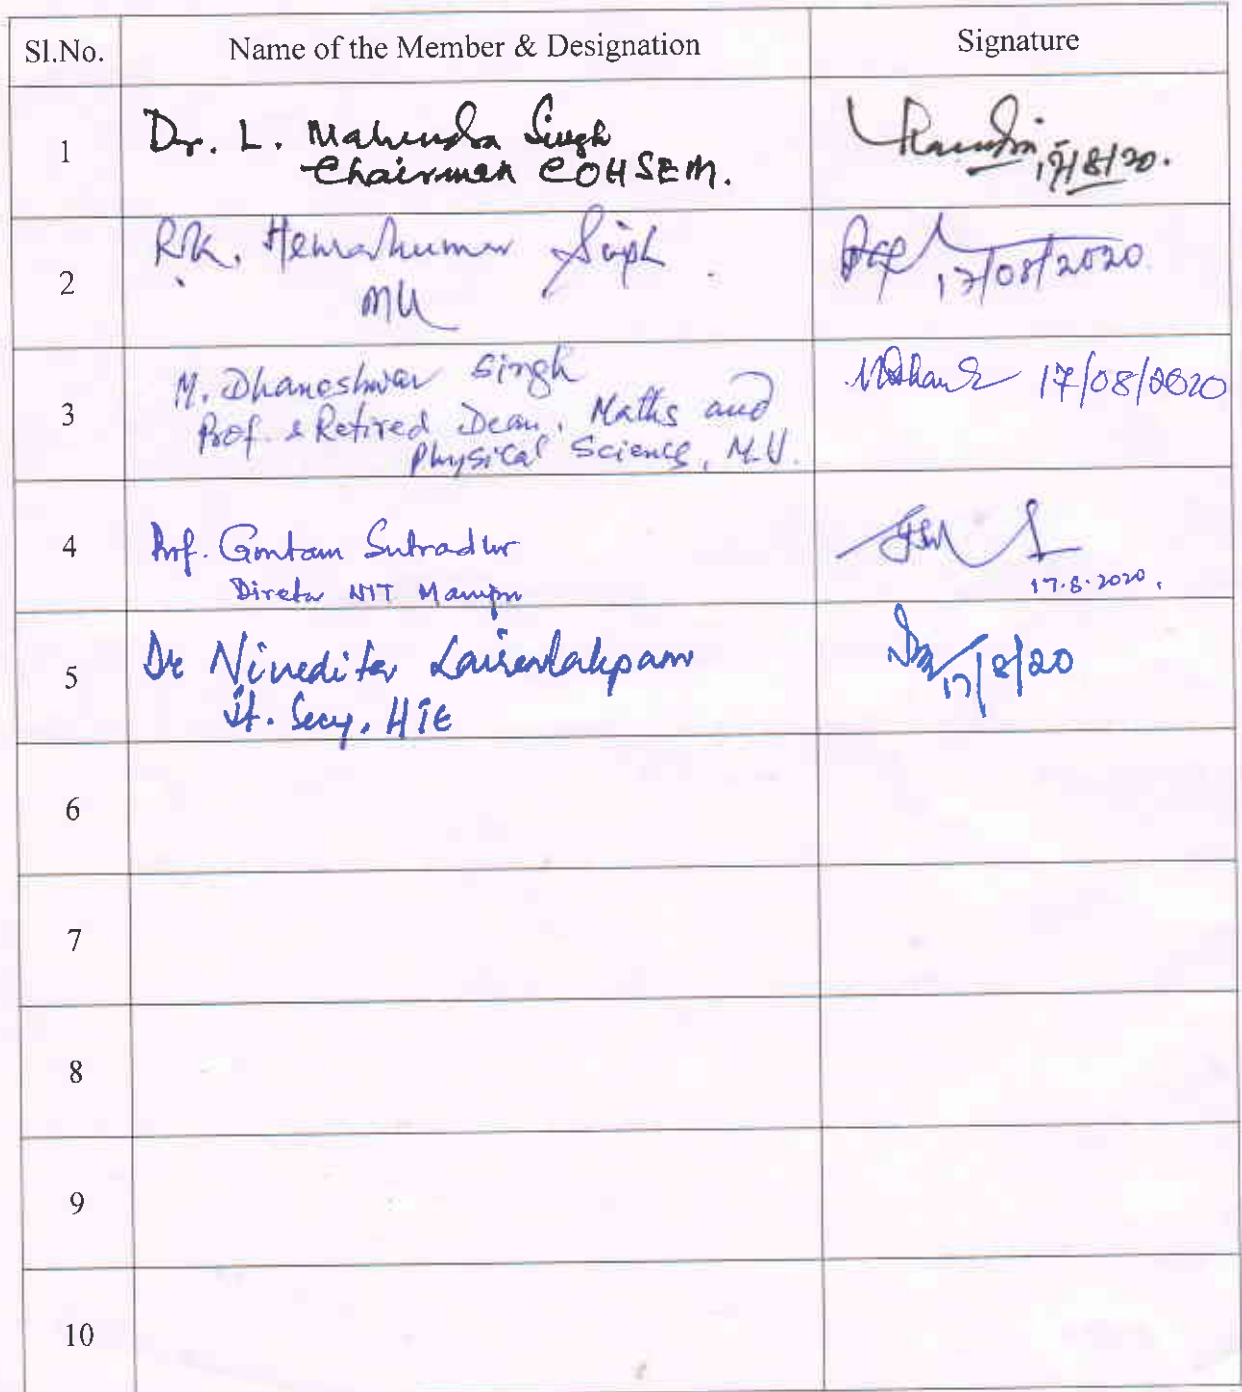 Sl.No. Name of the Member & Designation Signature
1 Dr. L. Mahendra Singh
Chairman COHSEM.
17/8/20.
2 R.K. Hemakumar Singh
MU
17/08/2020
3 M. Dhaneshwar Singh
Prof. & Retired Dean, Maths and
Physical Science, M.U.
17/08/2020
4 Prof. Goutam Sutradhar
Director NIT Manipur
17.8.2020,
5 Dr Nivedita Lairenlakpam
Jt. Secy. HTE
17/8/20
6
7
8
9
10